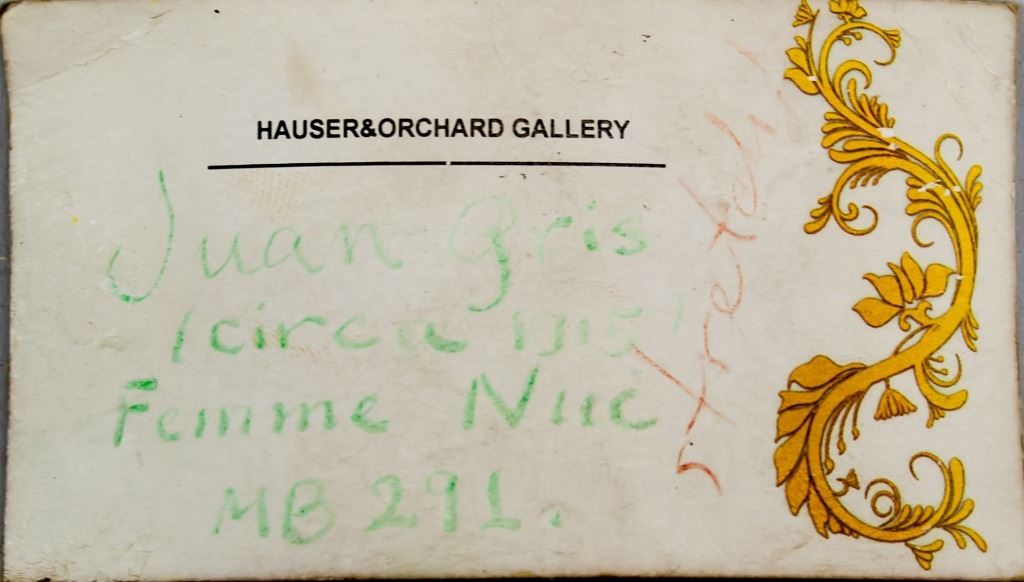 HAUSER&ORCHARD GALLERY
Juan Gris
(circa 1915)
Femme Nue
MB 291.